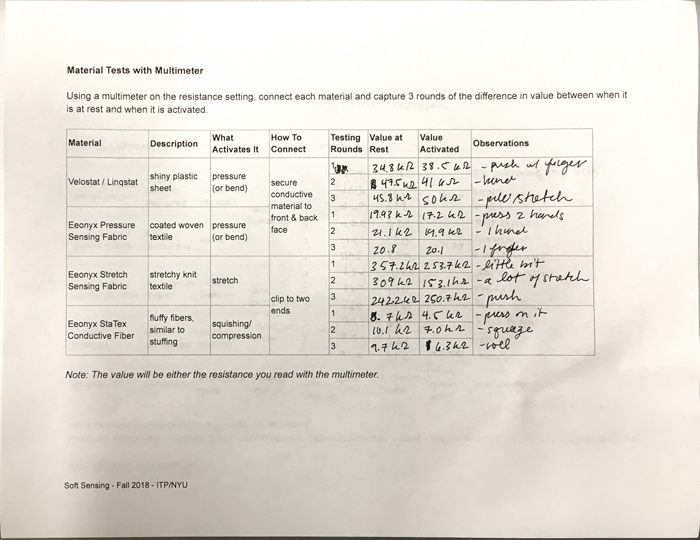 Material Tests with Multimeter
Using a multimeter on the resistance setting, connect each material and capture 3 rounds of the difference in value between when it
is at rest and when it is activated.
Material Description What Activates It How To Connect Testing Rounds Value at Rest Value Activated Observations
Velostat / Linqstat shiny plastic sheet pressure (or bend) secure conductive material to front & back face
1 34.8 kΩ 38.5 kΩ - push w/ finger
2 47.5 kΩ 41 kΩ
3 45.8 kΩ 50 kΩ - pull/stretch
Eeonyx Pressure Sensing Fabric coated woven textile pressure (or bend)
1 19.93 kΩ 17.2 kΩ - press 2 hands
2 21.1 kΩ 19.9 kΩ - 1 hand
3 20.8 20.1 - 1 finger
Eeonyx Stretch Sensing Fabric stretchy knit textile stretch clip to two ends
1 357.2 kΩ 253.7 kΩ - little bit
2 309 kΩ 153.1 kΩ - a lot of stretch
3 242.2 kΩ 250.7 kΩ - push
Eeonyx StaTex Conductive Fiber fluffy fibers, similar to stuffing squishing/ compression
1 8.7 kΩ 4.5 kΩ - press on it
2 10.1 kΩ 7.0 kΩ - squeeze
3 9.7 kΩ 6.3 kΩ - roll
Note: The value will be either the resistance you read with the multimeter.
Soft Sensing - Fall 2018 - ITP/NYU